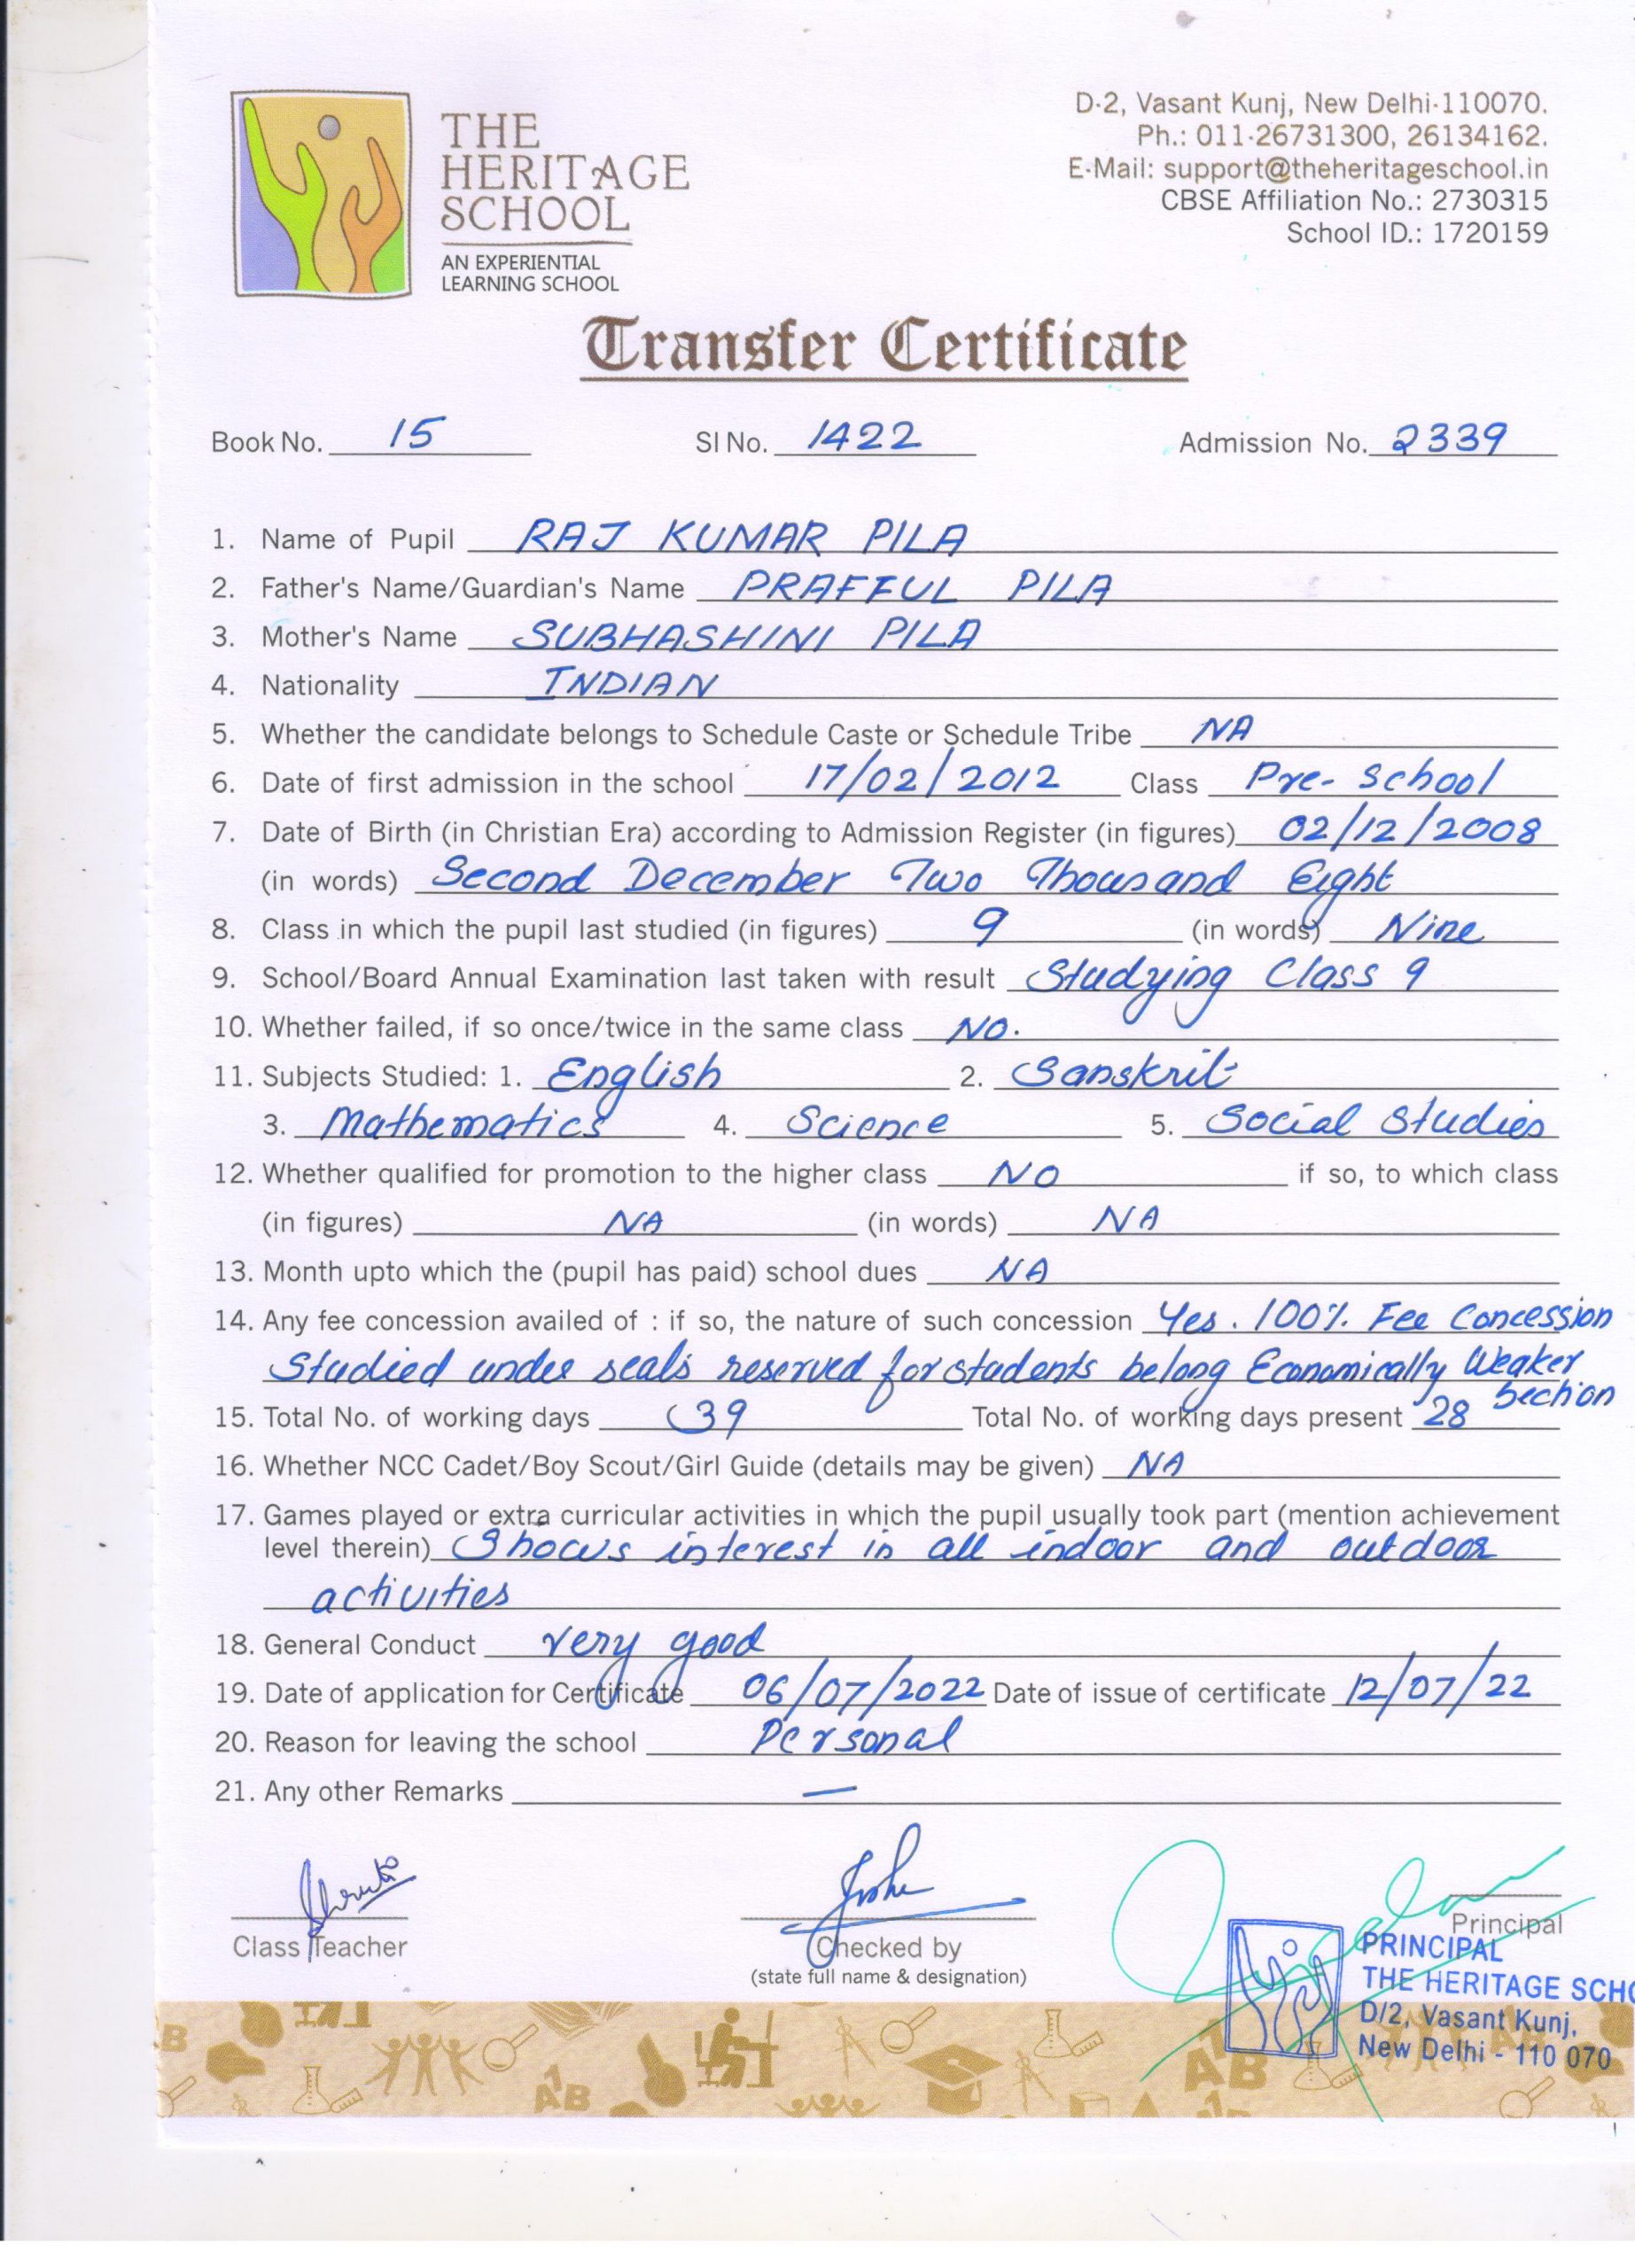 THE
HERITAGE
SCHOOL
AN EXPERIENTIAL
LEARNING SCHOOL
D-2, Vasant Kunj, New Delhi-110070.
Ph.: 011-26731300, 26134162.
E-Mail: support@theheritageschool.in
CBSE Affiliation No.: 2730315
School ID.: 1720159
Transfer Certificate
Book No. 15 Sl No. 1422 Admission No. 2339
1. Name of Pupil RAJ KUMAR PILA
2. Father's Name/Guardian's Name PRAFFUL PILA
3. Mother's Name SUBHASHINI PILA
4. Nationality INDIAN
5. Whether the candidate belongs to Schedule Caste or Schedule Tribe NA
6. Date of first admission in the school 17/02/2012 Class Pre-School
7. Date of Birth (in Christian Era) according to Admission Register (in figures) 02/12/2008
(in words) Second December Two Thousand Eight
8. Class in which the pupil last studied (in figures) 9 (in words) Nine
9. School/Board Annual Examination last taken with result Studying Class 9
10. Whether failed, if so once/twice in the same class NO.
11. Subjects Studied: 1. English 2. Sanskrit
3. Mathematics 4. Science 5. Social Studies
12. Whether qualified for promotion to the higher class NO if so, to which class
(in figures) NA (in words) NA
13. Month upto which the (pupil has paid) school dues NA
14. Any fee concession availed of : if so, the nature of such concession Yes. 100% Fee Concession
Studied under seats reserved for students belong Economically Weaker
Section
15. Total No. of working days 39 Total No. of working days present 28
16. Whether NCC Cadet/Boy Scout/Girl Guide (details may be given) NA
17. Games played or extra curricular activities in which the pupil usually took part (mention achievement
level therein) Shows interest in all indoor and outdoor
activities
18. General Conduct very good
19. Date of application for Certificate 06/07/2022 Date of issue of certificate 12/07/22
20. Reason for leaving the school Personal
21. Any other Remarks —
Class Teacher
Checked by
(state full name & designation)
Principal
PRINCIPAL
THE HERITAGE SCHO
D/2, Vasant Kunj,
New Delhi - 110 070